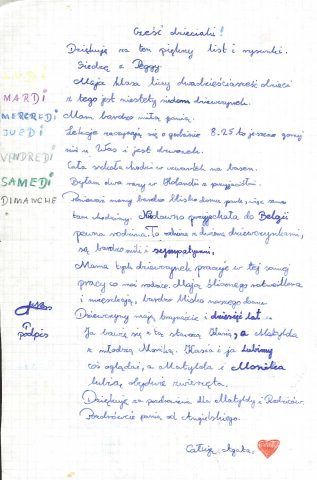 Cześć dzieciaki!
Dziękuję za ten piękny list i rysunki.
Siedzę z Peggy
Moja klasa liczy dwadzieścia dzieci
z tego jest niestety siedem dziewczynek.
Mam bardzo miłą panią.
Lekcje zaczynają się o godzinie 8.25 to jeszcze gorzej
niż u Was i jest dzwonek.
Cała szkoła chodzi w czwartek na basen.
Byłam dwa razy w Holandii z przyjaciółmi.
mamy bardzo blisko domu park, więc sama
tam chodzimy. Niedawno przyjechała do Belgii
pewna rodzina. To rodzina z dwiema dziewczynkami,
są bardzo mili i sympatyczni.
Mama tych dziewczynek pracuje w tej samej
pracy co moi rodzice. Mają ślicznego
i mieszkają, bardzo blisko naszego domu
Dziewczyny mają i dziesięć lat.
Ja bawię się z tą starszą Kasią, a Matylda
z młodszą Moniką. Kasia i ja lubimy
coś oglądać, a Matylda i Monika
lubią obydwie zwierzęta.
Dziękuję za pozdrowienia dla Matyldy i Rodziców.
Pozdrówcie panią od Angielskiego.
Całuję Agata.
MARDI
MERCREDI
JUEDI
VENDREDI
SAMEDI
DIMANCHE
Podpis